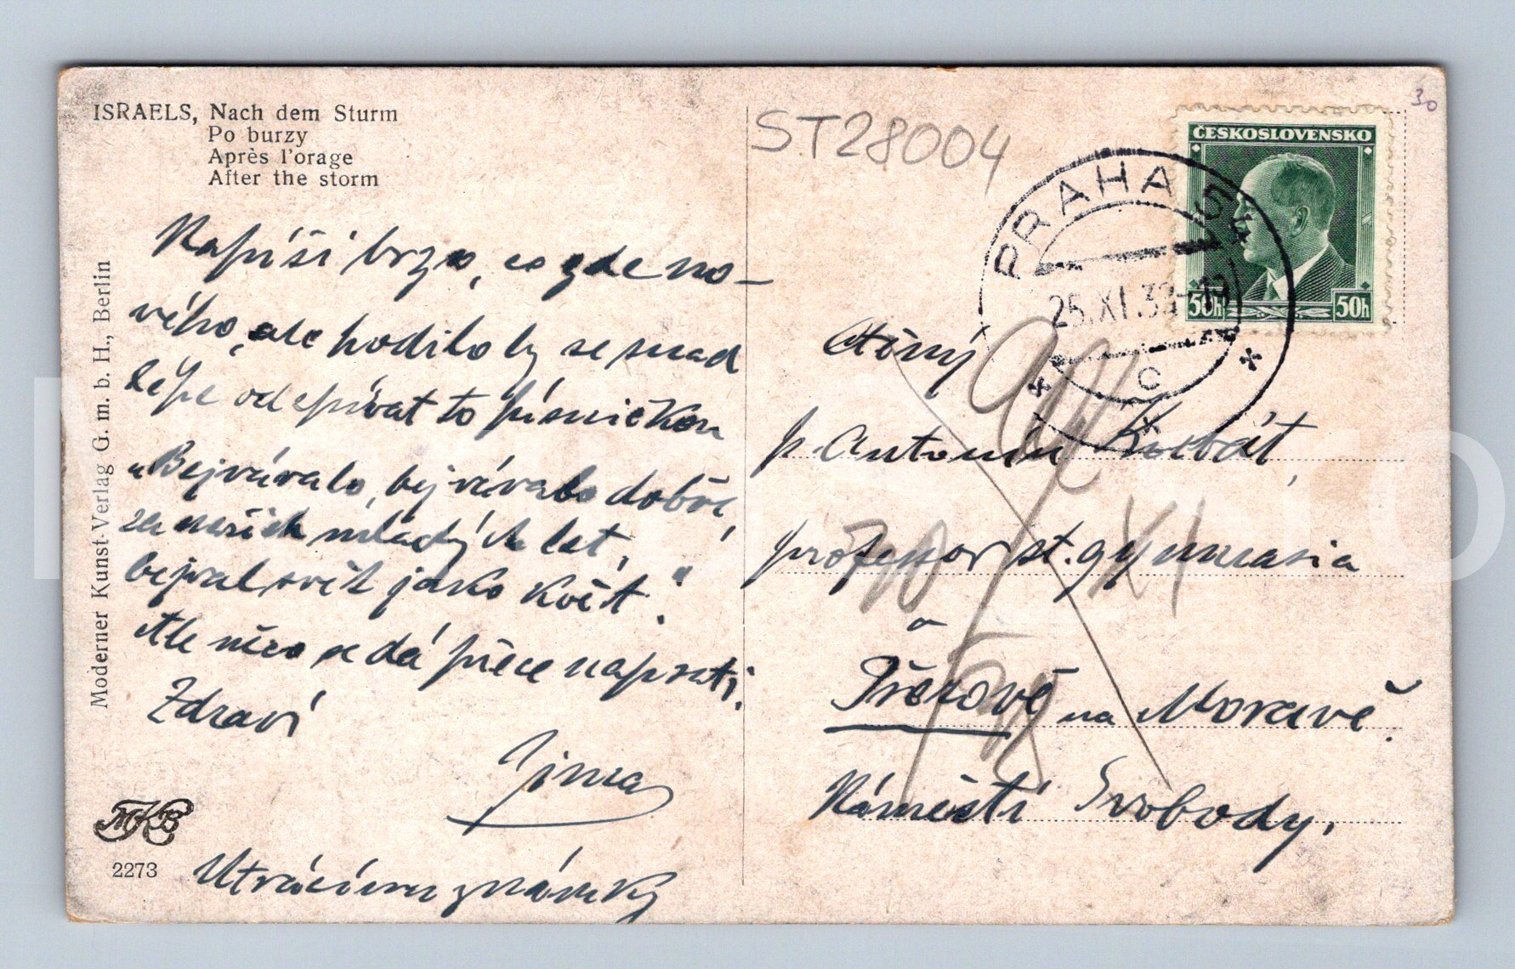 ISRAELS, Nach dem Sturm
Po burzy
Après l'orage
After the storm
Moderner Kunst-Verlag G. m. b. H., Berlin
Napíši brzo, co zde no-
vého, ale hodilo by se snad
lépe odepívat to písničkou
„Bejvávalo, bejvávalo dobře,
za našich mladých let,
bejval svět jako květ."
Ale něco se dá přece napsati.
Zdraví
Jima
Utrácíme známky
MKB
2273
ST28004
30
ČESKOSLOVENSKO
50h 50h
PRAHA 54
25.XI.38-19
C
Ctěný
p. Antonín
profesor st. gymnasia
v
Přerově na Moravě.
Náměstí Svobody.
XI